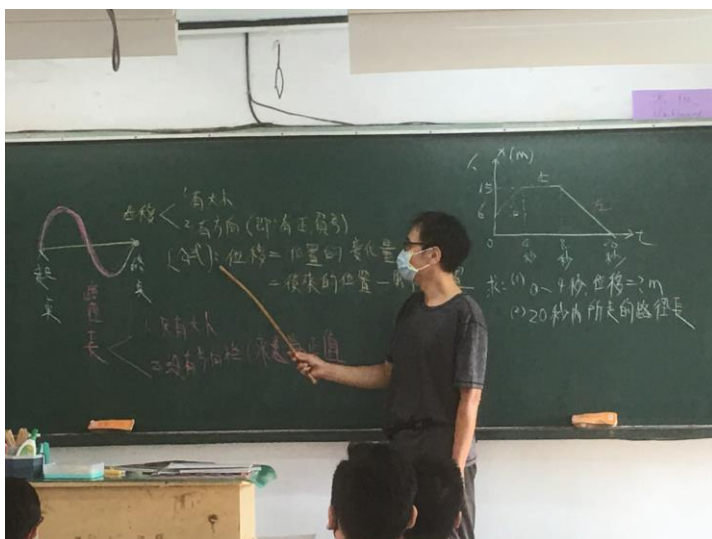 位移
1有大小
2有方向(即:有正、負号)
(公式):位移=位置的变化量
=後來的位置-
起點
終點
路徑長
1只有大小
2没有方向性(永遠
正值
x(m)
15
6
0
4
秒
8
秒
20
秒
t
求:(1) 0~4秒,位移=?m
(2) 20秒內所走的路徑長